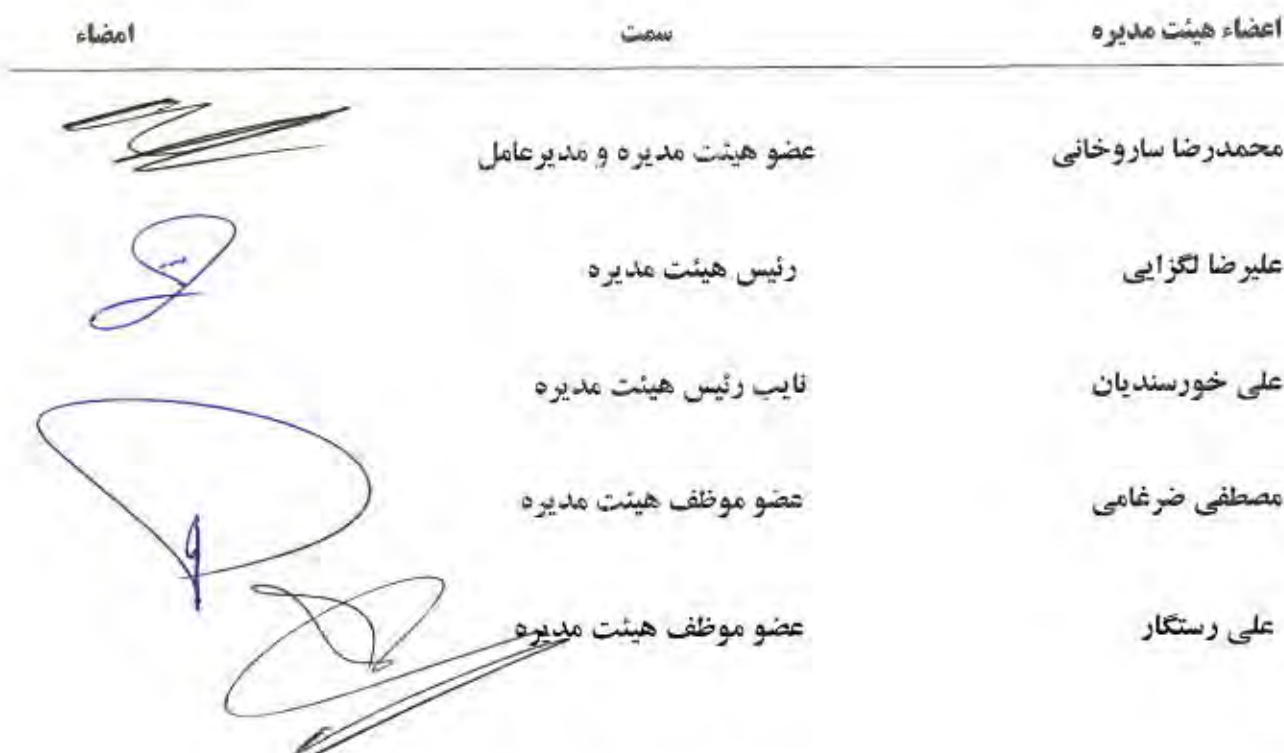 اعضاء هیئت مدیره سمت امضاء
محمدرضا ساروخانی عضو هیئت مدیره و مدیرعامل
علیرضا لگزایی رئیس هیئت مدیره
علی خورسندیان نایب رئیس هیئت مدیره
مصطفی ضرغامی عضو موظف هیئت مدیره
علی رستگار عضو موظف هیئت مدیره